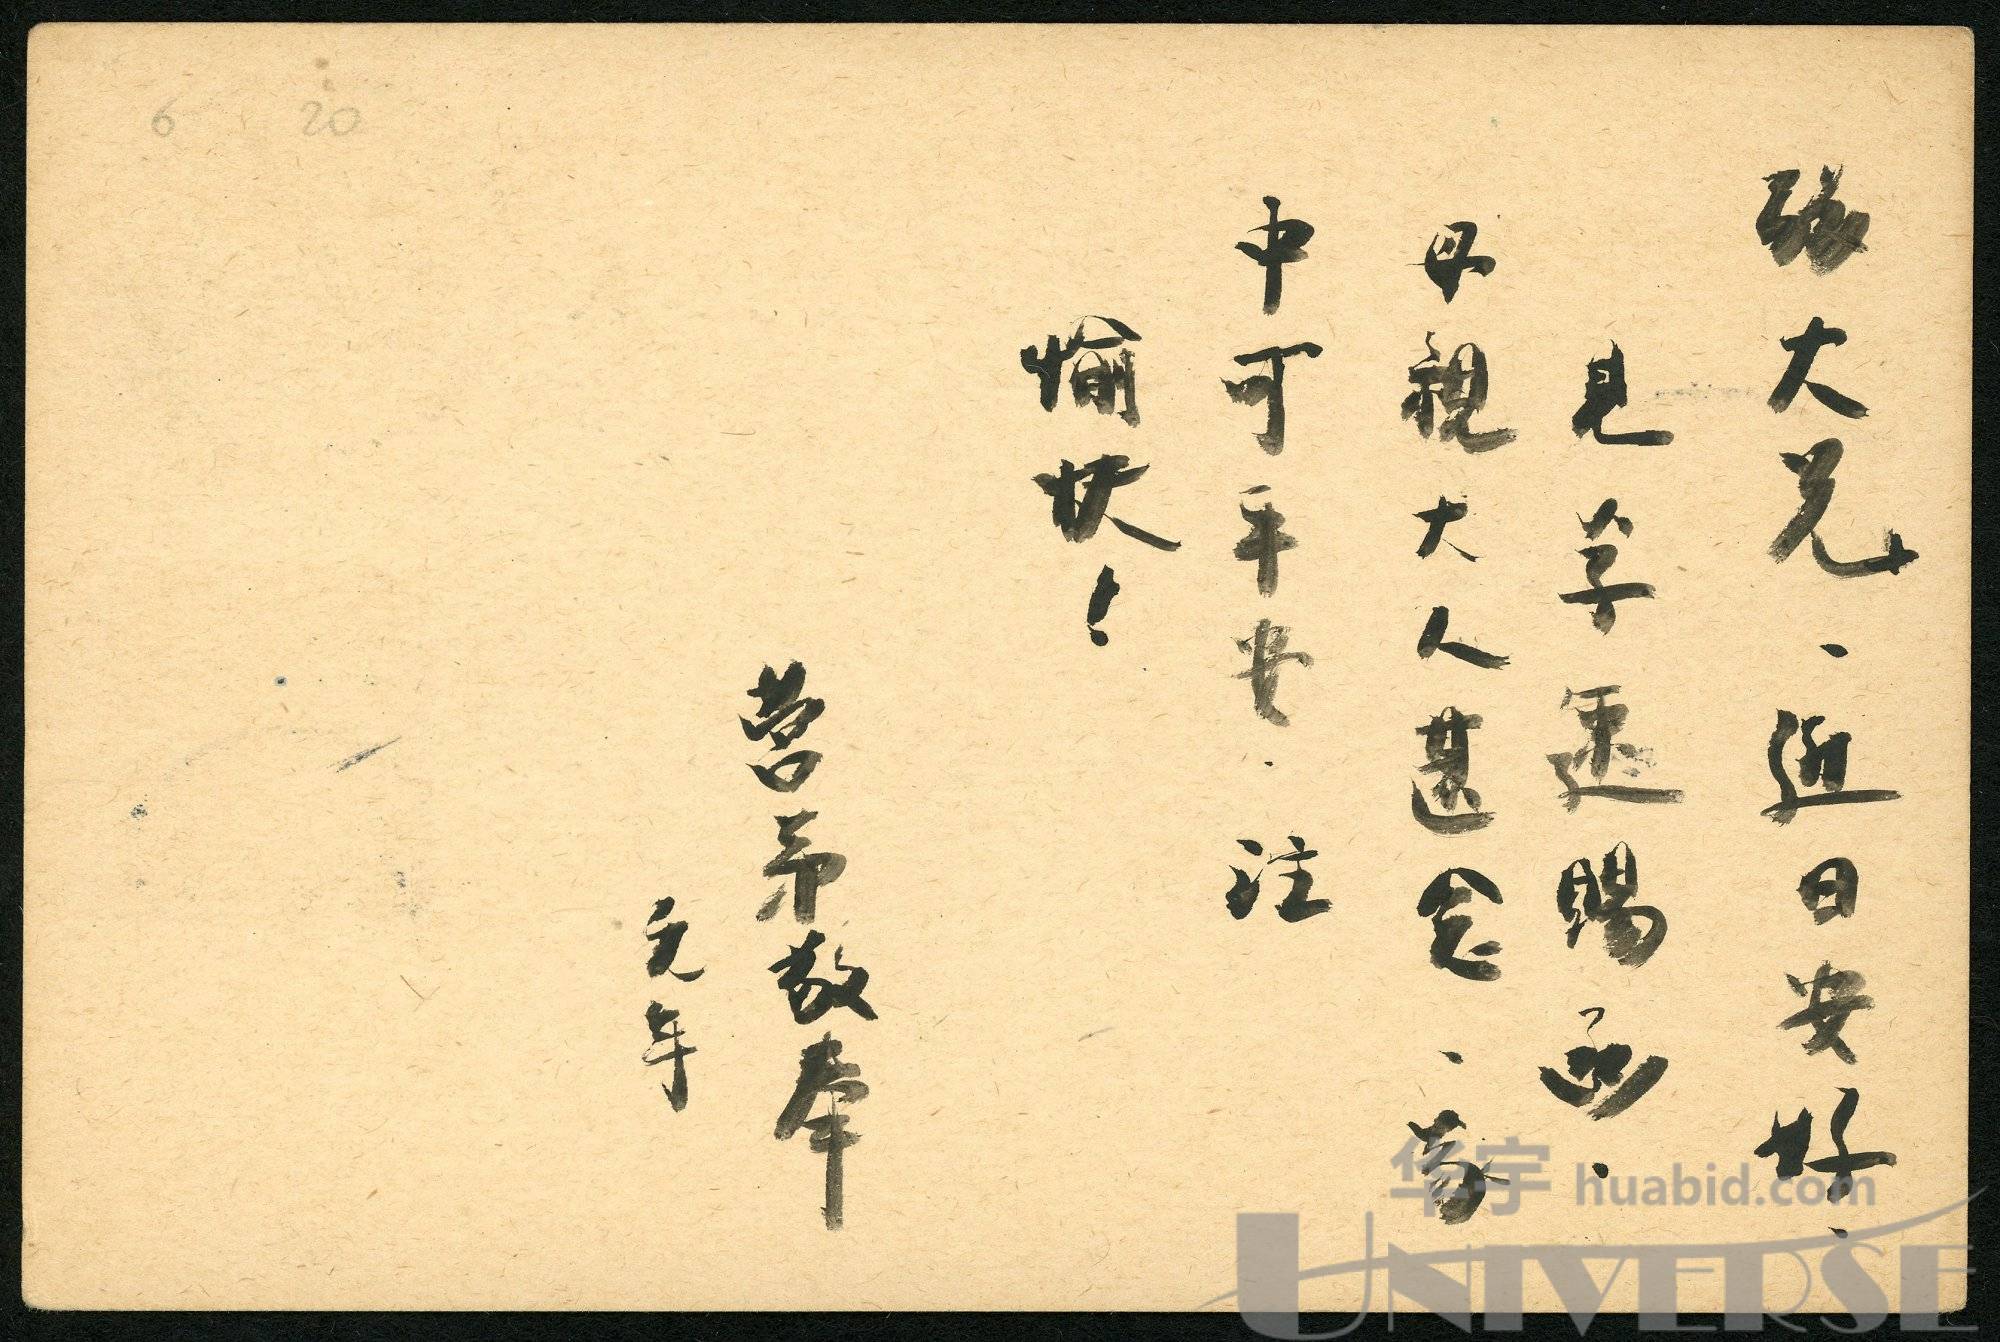 張大兄、近日安好、
見字速賜函、
母親大人甚念、家
中可平安、注
愉快！
弟敬奉
元年
6 20
华宇 huabid.com
UNIVERSE